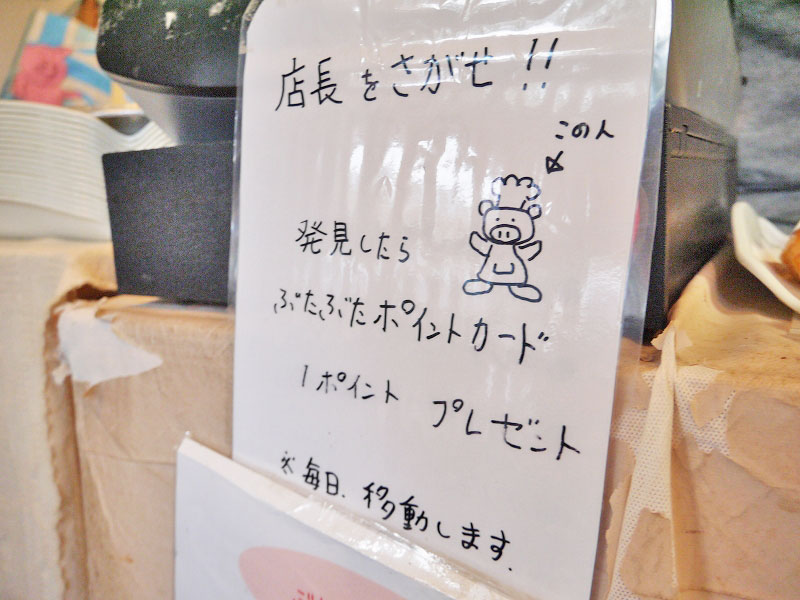 店長をさがせ!!
この人
発見したら
ぶたぶたポイントカード
1ポイント プレゼント
※毎日、移動します.